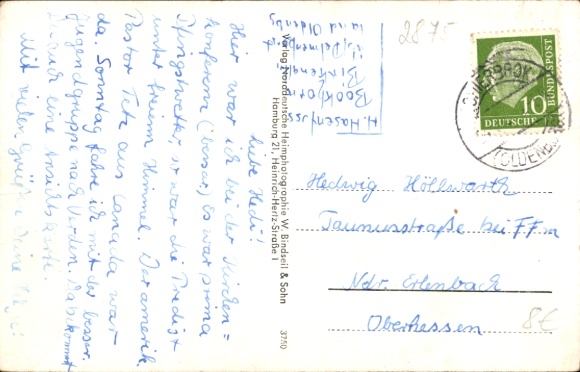 Liebe Hedi!
Hier war ich bei der Kirchen=
konferenz (besser) Es war prima
Pfingstwetter, so war die Predigt
unter freiem Himmel. Der amerik.
Pastor aus Canada war
da. Sonntag fahre ich mit der
Jugendgruppe nach Verden. Da bekommst
Du auch eine Ansichtskarte.
Mit vielen Grüßen Deine
H. Hasenfuss
Bookhorn
Delmenhorst
Land Oldenbg
Verlag Norddeutsche Heimphotographie W. Bindseil & Sohn
Hamburg 21, Heinrich-Hertz-Straße 1
3750
2875
10
DEUTSCHE
BUNDESPOST
(OLDENB)
Hedwig Höllwarth
Taunusstraße bei FFm
Ndr. Erlenbach
Oberhessen
8€